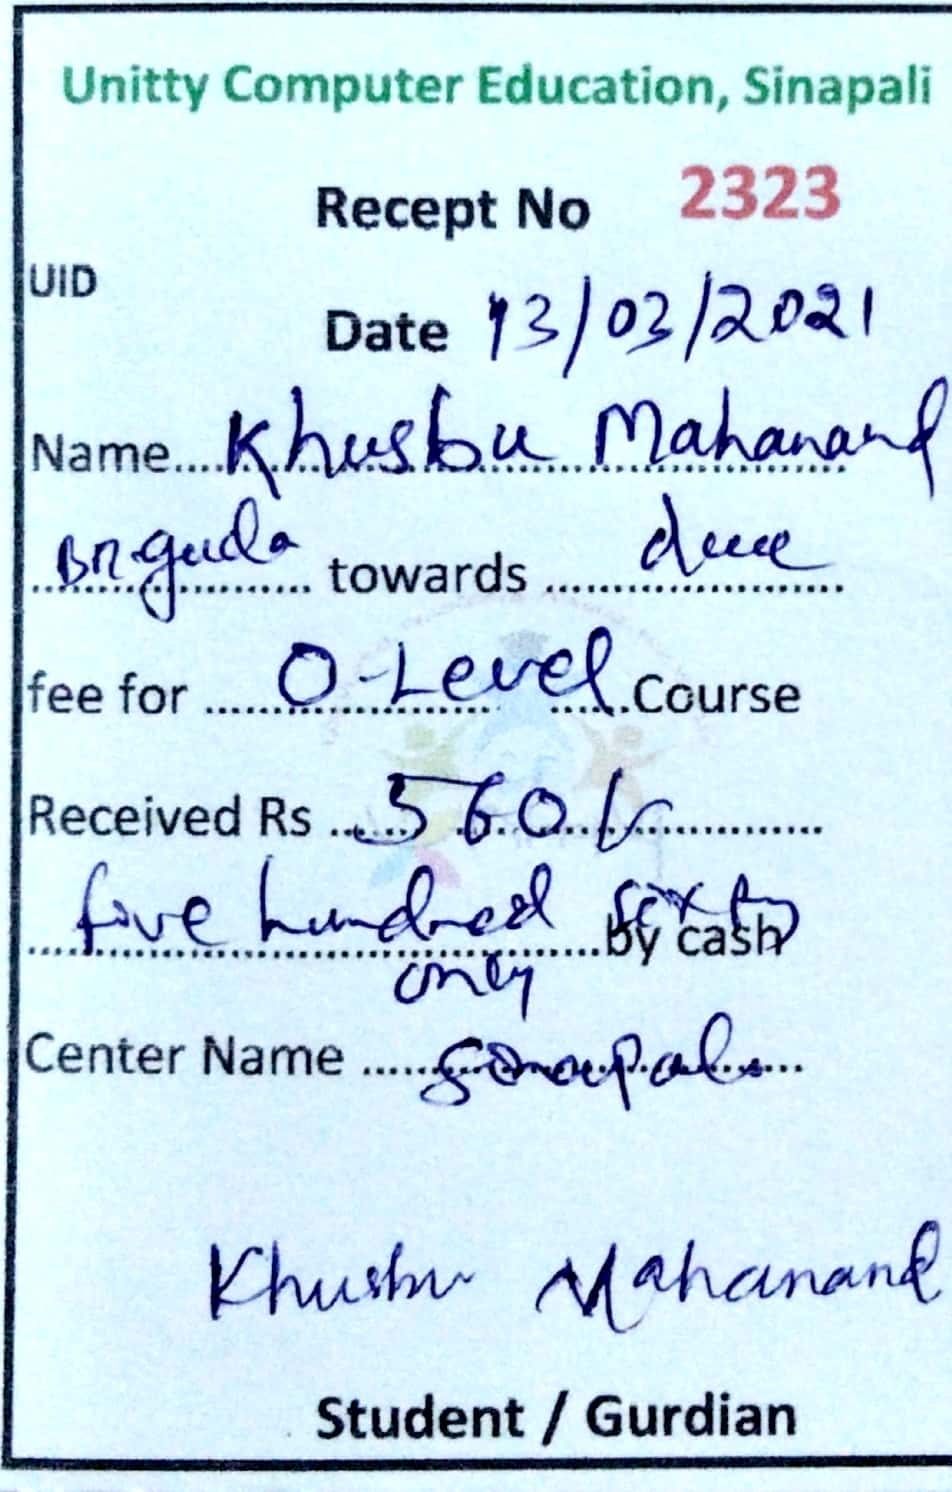 Unitty Computer Education, Sinapali
Recept No 2323
UID
Date 13/03/2021
Name....Khusbu Mahanand
Bn.guda towards due
fee for O-Level Course
Received Rs 560/-
five hundred sixty
by cash
only
Center Name Sinapali
Khusbu Mahanand
Student / Gurdian